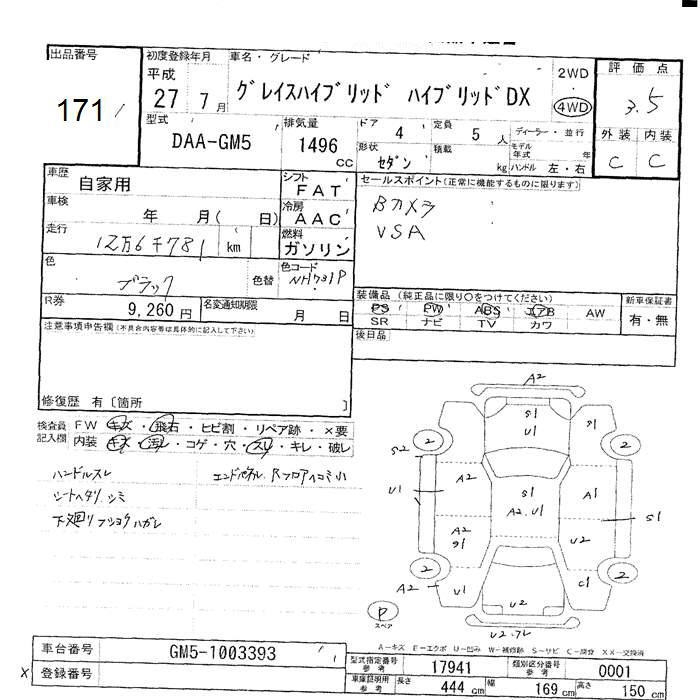 出品番号
171
初度登録年月
平成
27 7月
車名・グレード
グレイスハイブリッド ハイブリッドDX
2WD
4WD
評価点
3.5
外装 内装
C C
型式
DAA-GM5
排気量
1496
CC
ドア
4
定員
5人
形状
セダン
積載
kg
ディーラー・並行
モデル年式 年
ハンドル 左・右
車歴
自家用
車検
年 月( 日)
走行
12万6千781 km
色
ブラック
色替
シフト
FAT
冷房
AAC
燃料
ガソリン
色コード
NH731P
セールスポイント(正常に機能するものに限ります)
Bカメラ
VSA
R券
9,260円
名変通知期限
月 日
装備品 (純正品に限り○をつけてください)
PS PW ABS エアB AW
SR ナビ TV カワ
新車保証書
有・無
後日品
注意事項申告欄(不具合内容等は具体的に記入して下さい)
修復歴 有〔箇所 〕
検査員記入欄
FW キズ・飛石・ヒビ割・リペア跡・×要
内装 キズ・汚レ・コゲ・穴・スレ・キレ・破レ
ハンドルスレ
シートヘタリ、シミ
下廻リフショクハガレ
エンドパネル、Rフロアヘコミ小
A2
S1
U1
S1
2
2
S2
U1
A2
S1
A2.U1
A1
S1
A2
S1
U2
2
2
A2
U1
U2
C1
U2.ワレ
P
スペア
A-キズ E-エクボ U-凹み W-補修跡 S-サビ C-腐食 XX-交換済
車台番号
GM5-1003393
登録番号
X
型式指定番号
参考
17941
類別区分番号
参考
0001
車庫証明用
参考
長さ
444 cm
幅
169 cm
高さ
150 cm